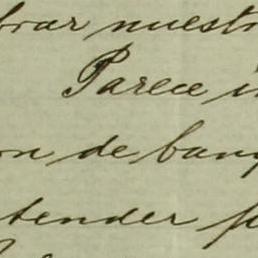 brar nuestr
Parece i
on de banq
tender p